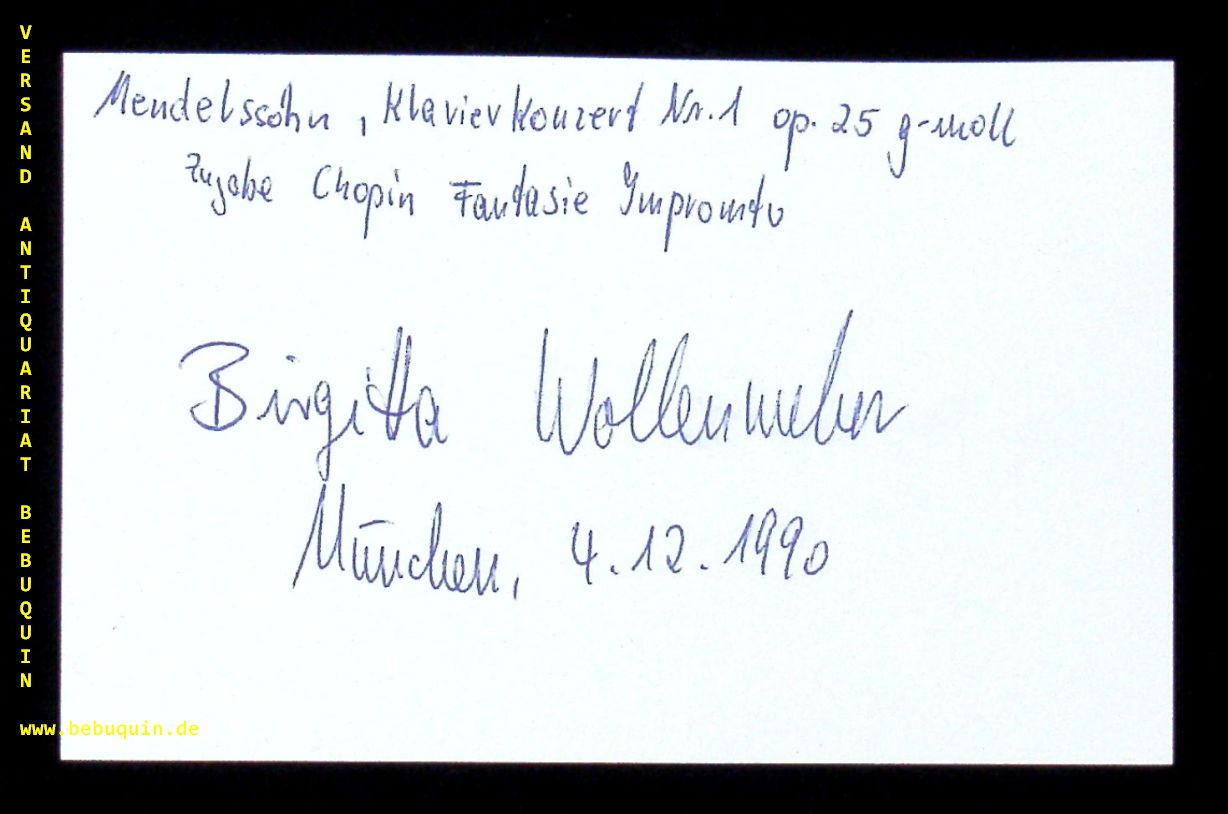 Mendelssohn, Klavierkonzert Nr. 1 op. 25 g-moll
Zugabe Chopin Fantasie Impromtu
Birgitta Wollenweber
München, 4.12.1990
VERSAND ANTIQUARIAT BEBUQUIN
www.bebuquin.de